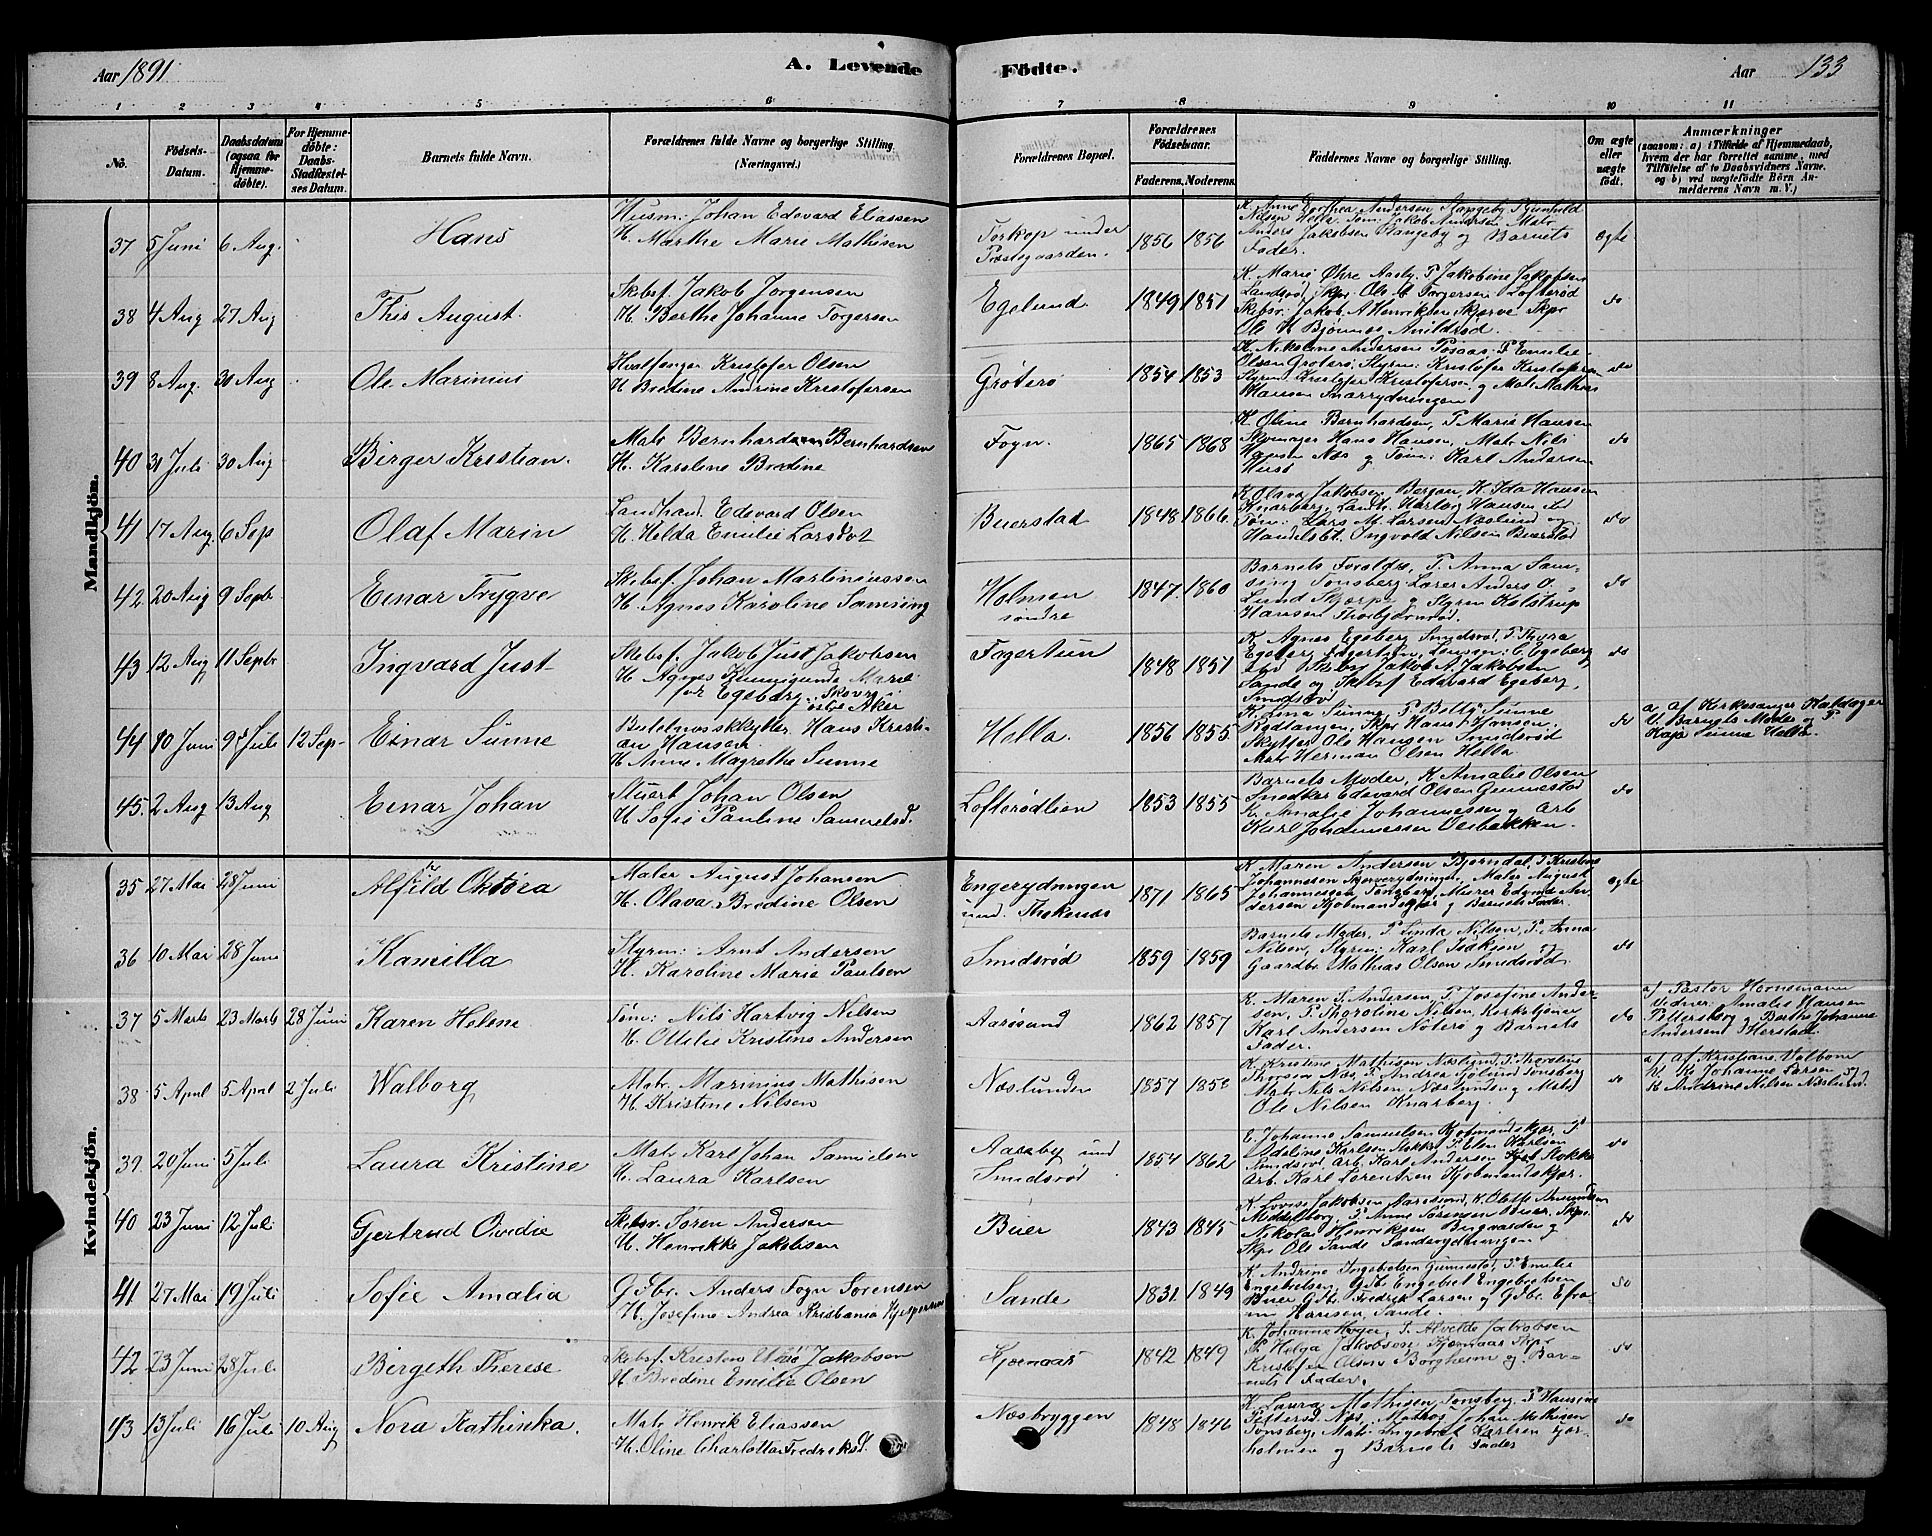 Aar 1891
A. Levende Födte.
Aar 133
1 2 3 4 5 6 7 8 9 10 11
No.
Födsels-Datum.
Daabsdatum (ogsaa for Hjemme-døbte).
For Hjemme-döbte: Daabs-Stadfæstel-ses Datum.
Barnets fulde Navn.
Forældrenes fulde Navne og borgerlige Stilling. (Næringsvei.)
Forældrenes Bopæl.
Forældrenes Födselsaar.
Faderens. Moderens.
Faddernes Navne og borgerlige Stilling.
Om ægte eller uægte födt.
Anmærkninger
(saasom: a) i Tilfælde af Hjemmedaab,
hvem der har forrettet samme, med
Tilföielse af to Daabsvidners Navne,
og b) ved uægtefödte Börn An-
melderens Navn m. V.)
Mandkjön.
37 5 Juni 6 Aug. Hans
Husm: Johan Edvard Eliassen
H. Marthe Marie Mathisen
under Præstegaarden. 1856 1856
K. Anne Dorthea Andersen
Anders Jakobsen Stangeby og Barnets
Fader.
Ægte
38 4 Aug 27 Aug This August.
Skbsf. Jakob Jorgensen
H. Berthe Johanne Torgersen
Egelund 1849 1851
K. Marie Øhre Aasly. P Jakobine Jakobsen
Landsrød, Skpr Ole A Torgersen Lofterød
Skbsr. Jakob A Henriksen Skjerve Skpr
Ole H Bjønnes
do
39 8 Aug. 30 Aug Ole Marinius
Hvalfanger Kristofer Olsen
H Bredine Andrine Kristofersen
Grøterø 1854 1853
K. Nikoline Andersen P Emilie
Olsen Grøterø, Styrm: Kristofer Kristofersen
Styrm Kristofer Kristofersen og Matr Mathias
Hansen Snarrydningen
do
40 31 Juli 30 Aug Birger Kristian.
Matr Bernhard Bernhardsen
H. Karoline Bredine
Fogn. 1865 1868
K Oline Bernhardsen, P. Marie Hansen
Skomager Hans Hansen, Matr Nils
Hansen Næs og Tøm: Karl Andersen
Husø
do
41 17 Aug. 6 Sep Olaf Marin
Landhand. Edvard Olsen
H. Helda Emilie Larsdot
Buerstad 1848 1866.
K Olava Jakobsen Bergan, K. Ida Hansen
Knarberg, Landh. Hartvig Hansen
Tøm: Lars M. Larsen Næslund og
Handelsbt. Ingvold Nilsen Buerstad
do
42 20 Aug 9 Sepbr Einar Trygve
Skbsf. Johan Martiniussen
H. Agnes Karoline Samsing
Holmen søndre 1847. 1860
Barnets Forældre, P. Anna Sam-
sing Tønsberg Lærer Anders O.
Lund Skjerpe og Styrm Kolstrup
Hansen Thorbjørnrød.
do
43 12 Aug 11 Sepbr Ingvard Just
Skbsf. Jakob Just Jakobsen
H. Agnes Kunnigunde Marie
Egeberg
Fagertun 1848 1851
K. Agnes Egeberg Smidsrød, P. Thora
Egeberg Fagertun, E. Egeberg
Skbsr Jakob A. Jakobsen
Sande og Skbsf Edevard Egeberg,
Smidsrø
do
44 10 Juni 9 Juli 12 Sep- Einar Sunne
Hans Kristi-
an Hansen
H. Anne Magrethe Sunne
Hella. 1856 1855
K. Lina Sunne, P. Betty Sunne
Rødtangen, Skpr Hans Hansen,
Skytter Ole Hansen Smidsrød
Matr Herman Olsen Hella
do
a. af Kirkesanger
V. Barnets Moder og P.
Kaja Sunne Hella.
45. 2 Aug 13 Aug Einar Johan
Stuert Johan Olsen
H Sofie Pauline Samuelsd.
Lofterødlien 1853 1855
Barnets Moder, K Amalie Olsen
Snedker Edevard Olsen Gunnestad
K. Amalie Johannessen og Arb
Karl Johannessen Oserbakken.
do
Kvindekjön.
35 27 Mai 28 Juni Alfhild Oktora
Maler August Johansen
H. Olava Bredine Olsen
Engerydningen und. Thokenæs 1871 1865
K. Maren Andersen Bjørndal, P Kristine
Johannessen Skjerverydningen, Maler August
Johannessen Tønsberg, Murer Edvard An-
dersen Kjøbmandskjær og Barnets Fader.
ægte
36 10 Mai 28 Juni Kamilla
Styrm: Arnt Andersen
H. Karoline Marie Paulsen
Smidsrød 1859 1859
Barnets Moder, P. Linda Nilsen, P. Anna
Nilsen, Styrm: Karl Isaksen og
Gaardbr Mathias Olsen Smidsrød.
do
37 5 Marts 23 Marts 28 Juni Karen Helene
Tøm: Nils Hartvig Nilsen
H. Ottilie Kristine Andersen
Aarøsund 1862 1857
K. Maren S. Andersen, P. Josefine Ander-
sen, P. Thoroline Nilsen, Kirketjener
Karl Andersen Nøterø og Barnets
Fader.
do
a) Pastor Hornemann
Vidner: Amalie Hansen
Pettersborg og Berthe Johanne
Andersen Herstad.
38 5 April 5 April 2 Juli Walborg
Matr. Marinius Mathisen
H. Kristine Nilsen
Næslunden 1857 1858
K. Kristine Mathisen Næslund, P. Thorstine
Thorsen Næs, P. Andrea Sjølund Tønsberg
Matr Nils Nilsen Næslunden og Matr
Ole Nilsen Knarberg.
do
a) af Kristiane Valbom
V. K Johanne Larsen og
K Andrine Nilsen Næslund.
39. 20 Juni 5 Juli Laura Kristine
Matr Karl Johan Samuelsen
H. Laura Karlsen
Aaseby und Smidsrød 1854 1862
E. Johanne Samuelsen Kjøbmandskjær, P
Adeline Karlsen Stokke, P. Elen Karlsen
Smidsrød, Arb. Karl Andersen Stokke
Arb. Karl Lorentzen Kjøbmandskjær.
do
40 23 Juni 12 Juli Gjertrud Ovidia
Skbsr. Søren Andersen
H. Henrikke Jakobsen
Buer 1843 1845
K. Lovise Jakobsen Aarøsund, K. Olette Amundsen
Middelborg, P Anna Sørensen Buer, Skpr.
Nikolai Henriksen Brigvarden og
Skpr Ole Sande Sanderydningen
do
41 27 Mai 19 Juli Sofie Amalia
Gdbr. Anders Fogn Sørensen
H. Josefine Andrea Kristiania Kjespersen
Sande 1831 1849
K Andrine Ingebretsen Gunnestad, P. Emilie
Engebretsen, Gdbr Engebret Engebretsen
Buer Gdbr. Fredrik Larsen og Gdbr. Efra-
im Hansen, Sande.
do
42 23 Juni 28 Juli Birgeth Therese
Skbsf. Kristen Jakobsen
H. Bredine Emilie Olsen
Kjernaas 1842 1849
K. Johanne Høyer, P. Alvilde Jakobsen
P Helga Jakobsen, Kjernaas Skpr
Kristofer Olsen Borgheim og Bar-
nets Fader.
do
43 13 Juli 16 Juli 10 Aug Nora Kathinka.
Matr Henrik Eliassen
H. Oline Charlotta Fredriksd.
Næsbryggen 1848 1846
K. Laura Mathisen Tønsberg, P Hansine
Petterød Næs, Matros Johan Mathisen
Tønsberg, Matr. Ingebret Karlsen Fjær-
holmen og Barnets Fader
do